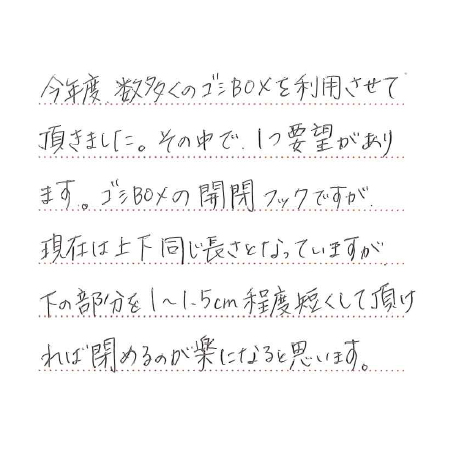 今年度、数多くのゴミBOXを利用させて
頂きました。その中で、1つ要望があり
ます。ゴミBOXの開閉フックですが、
現在は上下同じ長さとなっていますが、
下の部分を1〜1.5cm程度短くして頂け
れば閉めるのが楽になると思います。